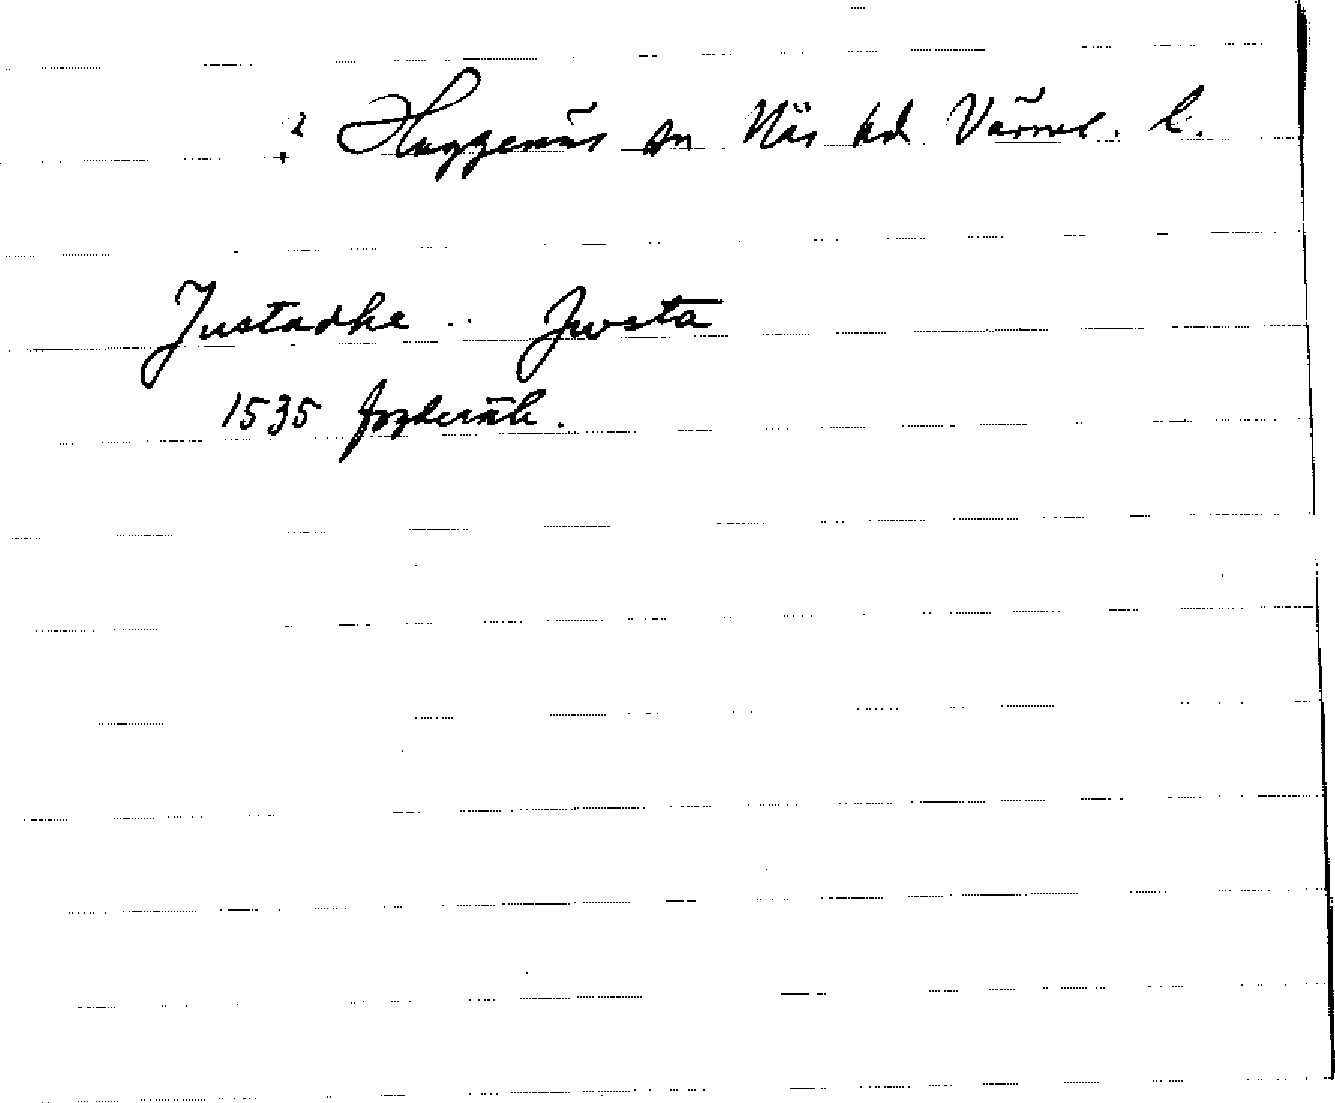 ? Huggenäs sn Näs hd Värml. l.
Justadke .. Justa
1535 fogderäk.